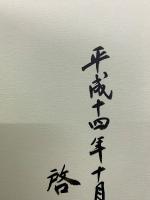 平成十四年十月
啓